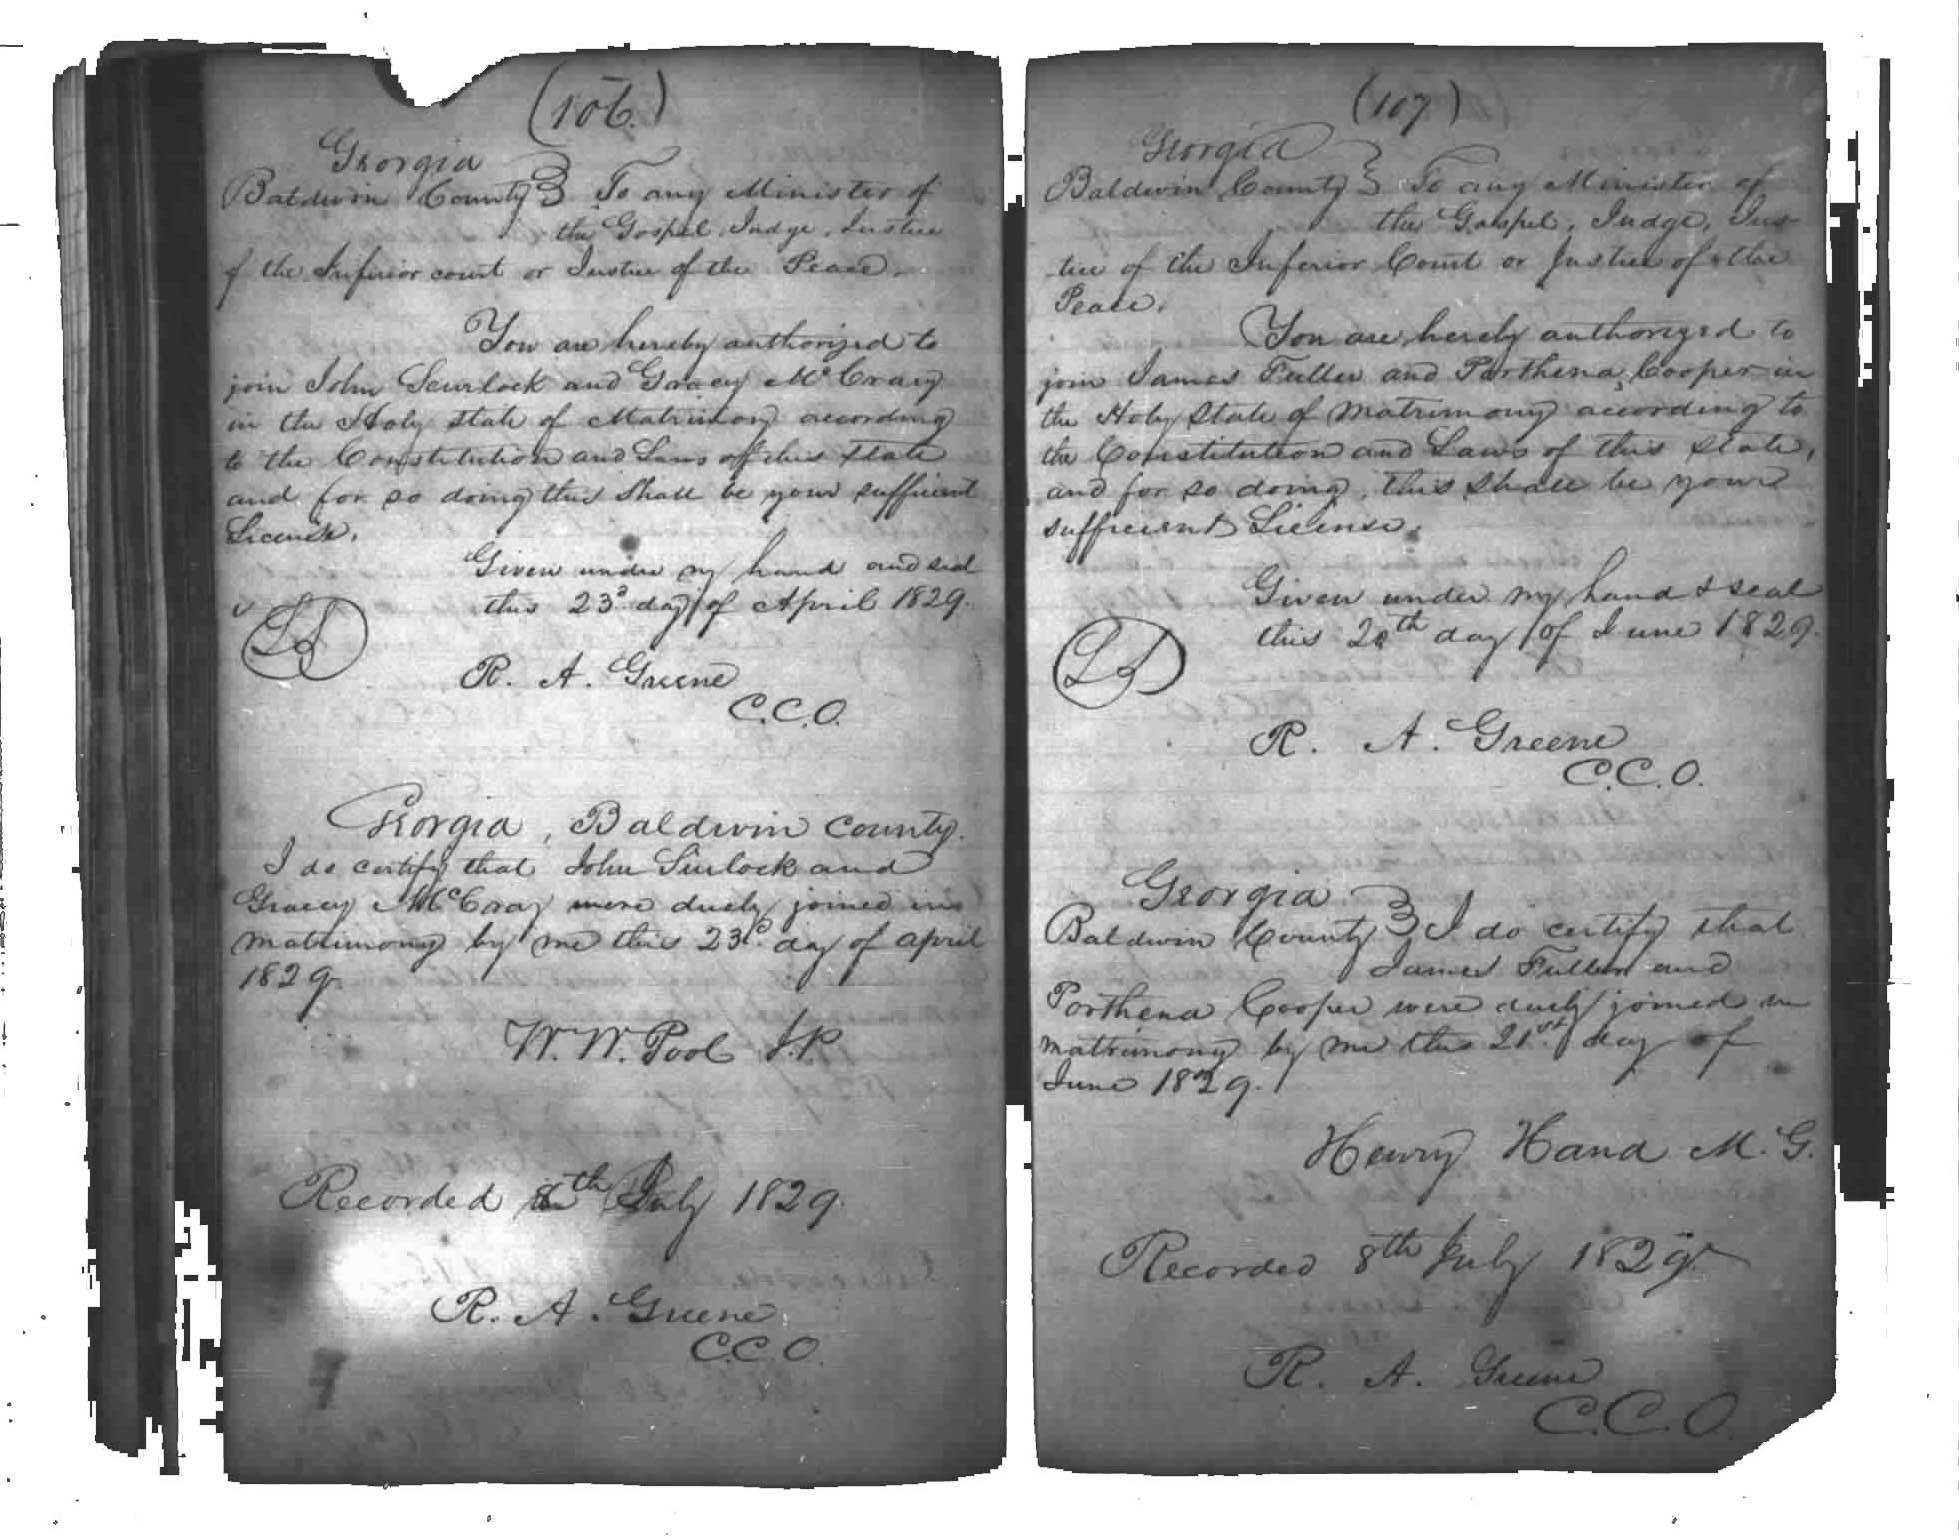 (106.)
Georgia
Baldwin County } To any Minister of
the Gospel, Judge, Justice
f the Inferior court or Justice of the Peace.
You are hereby authorized to
join John Scurlock and Gracey McCray
in the Holy state of Matrimony according
to the Constitution and Laws of this state
and for so doing this shall be your sufficient
License.
Given under my hand and seal
this 23d day of April 1829.
LS
R. A. Greene
C.C.O.
Georgia, Baldwin county.
I do certify that John Surlock and
Gracey McCray were duely joined in
matrimony by me this 23d day of april
1829
W. W. Pool J.P.
Recorded 8th July 1829.
R. A. Greene
C.C.O.
(107)
Georgia
Baldwin County } To any Minister of
the Gospel, Judge, Jus-
tice of the Inferior Court or Justice of the
Peace.
You are hereby authorized to
join James Fuller and Parthena Cooper in
the Holy State of Matrimony according to
the Constitution and Laws of this State,
and for so doing, this shall be your
sufficient License.
Given under my hand & seal
this 20th day of June 1829.
LS
R. A. Greene
C.C.O.
Georgia
Baldwin County } I do certify that
James Fuller and
Parthena Cooper were duely joined in
matrimony by me this 21st day of
June 1829.
Henry Hand M.G.
Recorded 8th July 1829
R. A. Greene
C.C.O.